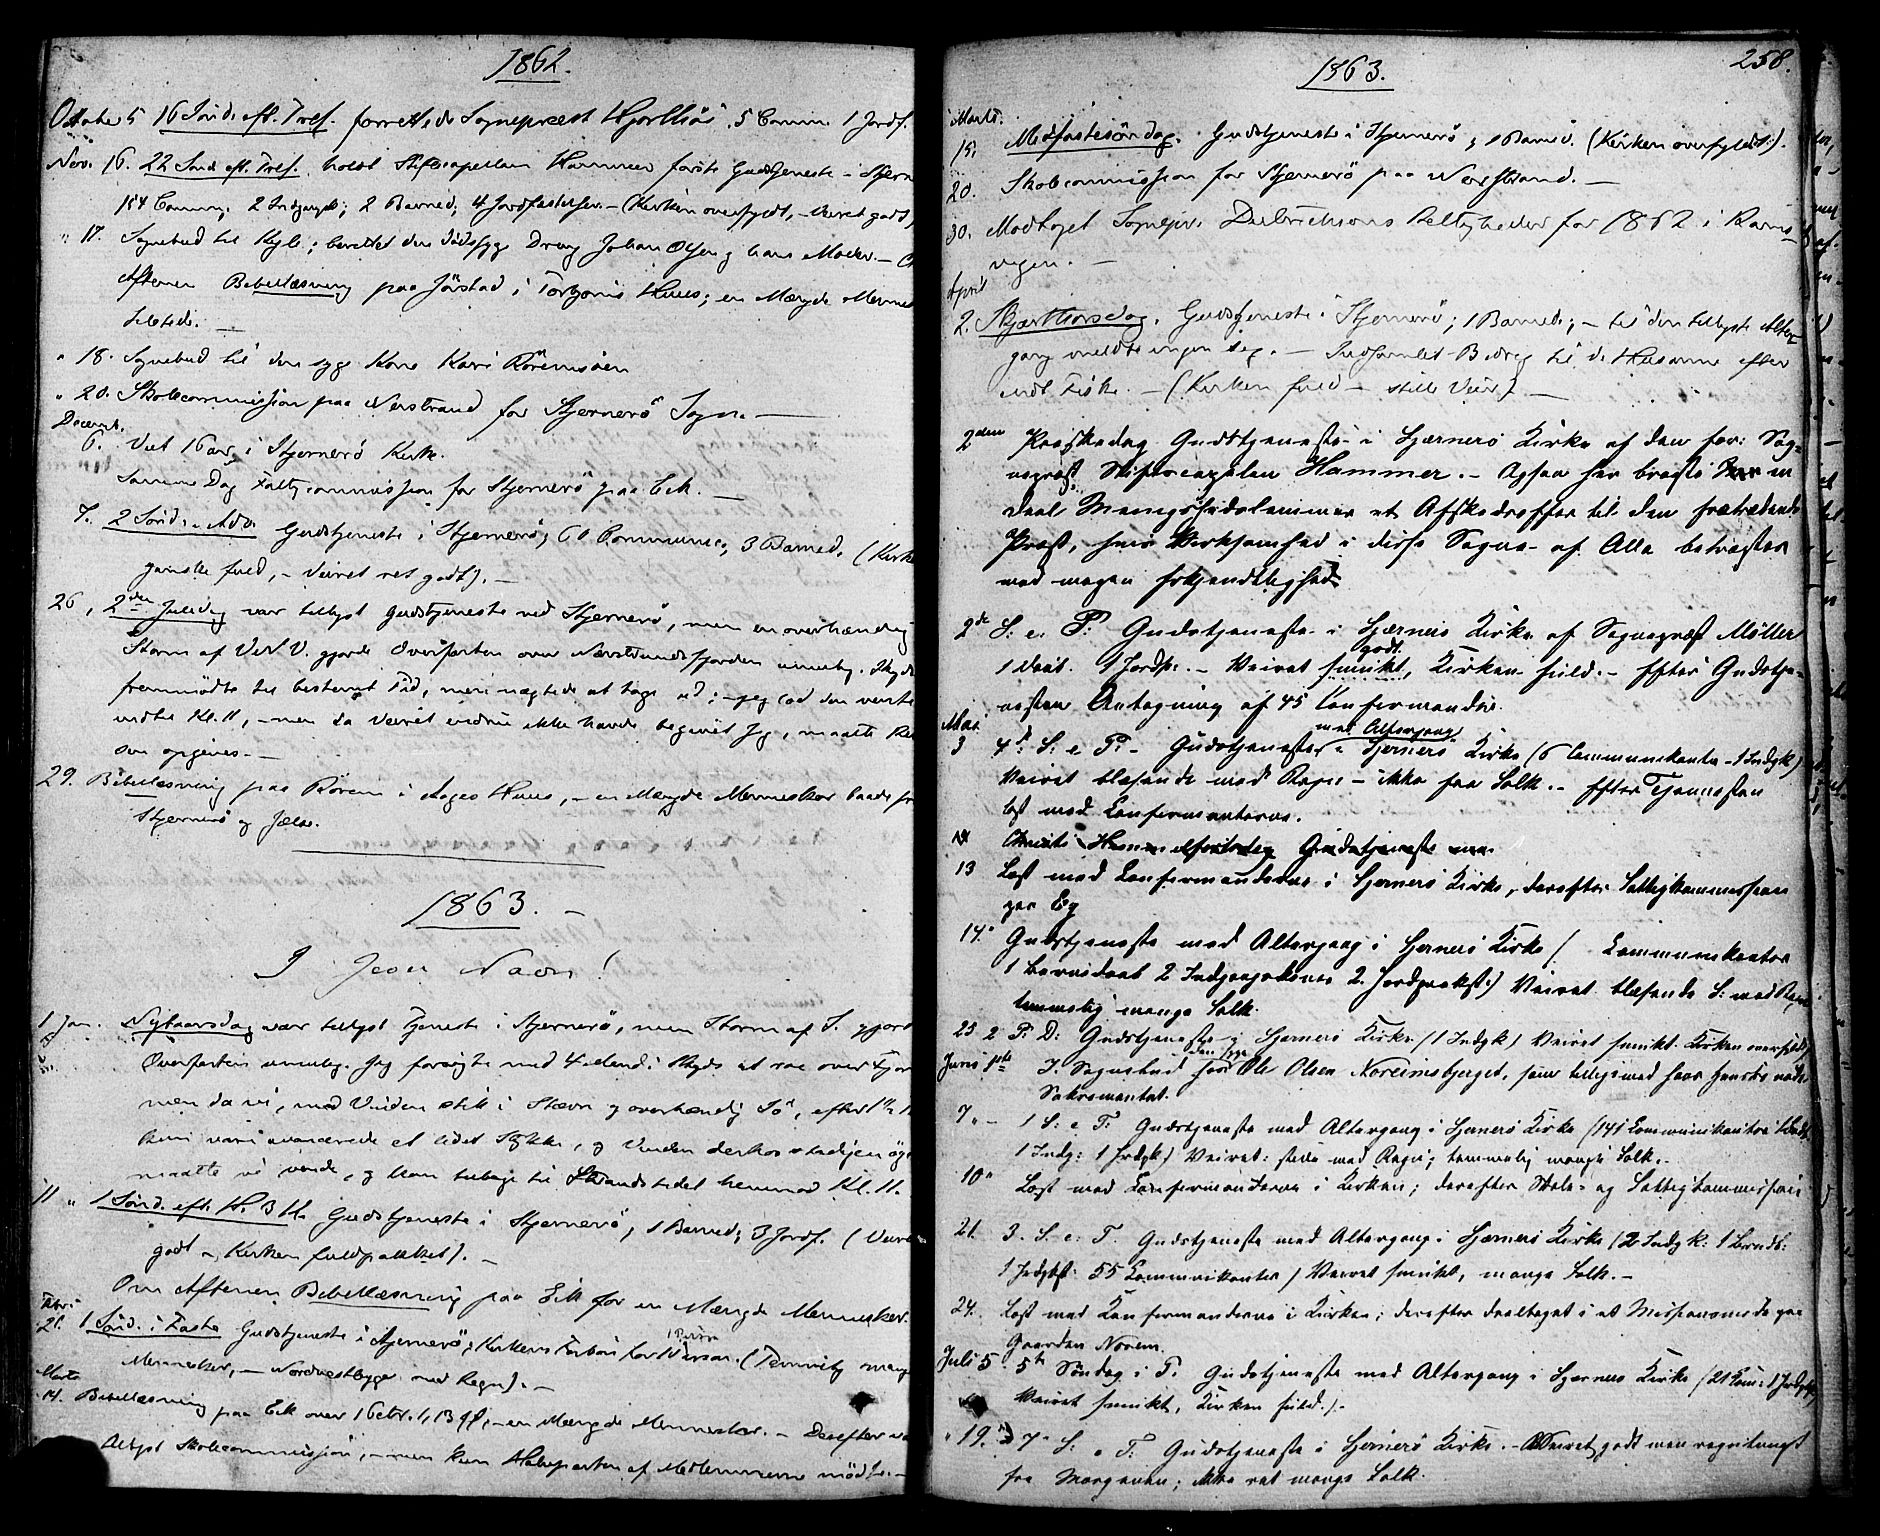 1862.
Octobe 5 16 Sönd. eft. Tref. forrettede Sognepræst Hjorthöi. 5 Comm. 1 Jordf.
Nov. 16. 22 Sönd. eft. Tref. holdt Stiftscapellan Hammer förste Gudstjeneste i Stjern
154 Commu; 2 Indgangsk; 2 Barned; 4 Jordfæstelser. – (Kirken overfyldt, – Veiret godt)
" 17. Sognebud til Kyle; berettet den dödssyge Dreng Johan Olsen og hans Moder. –
Aftenen Bibellæsning paa Jörstad i Huus; en Mængde Mennesk
tilstede. –
" 18. Sognebud til den syge Kone Kari
" 20. Skolecommission paa Nerstrand for Stjernerö Sogn. –
Decemb.
6. Viet 1 Par i Stjernerö Kirke.
Samme Dag Fattigcommission for Stjernerö paa Eik. –
7. 2 Sönd. i Adv. Gudstjeneste i Stjernerö; 60 Communic; 3 Barned. (Kirke
ganske fuld, – Veiret ret godt). –
26, 2den Juledag var tillyst Gudstjeneste ved Stjernerö, men en overhændig
Storm af V.N.V. gjorde Overfarten over Nærstrandsfjorden umulig. Skyds
fremmödte til bestemt Tid, men nægtede at tage ud; – jeg lod den vente
indtil Kl. 11, – men da Veiret endnu ikke havde begivet sig, maatte Rei
sen opgives. –
29. Bibellæsning paa Rörem i Aages Huus, – en Mængde Mennesker baade fr
Stjernerö og Jælse.
1863. –
I Jesu Navn!
1 Jan. Nytaarsdag var tillyst Tjeneste i Stjernerö, men Storm af S. gjort
Overfarten umulig. Jeg forsögte med 4 Mand i Skyds at roe over Fjor
men da vi, med Vinden stik i Stævn og overhændig Sö, efter
kun vare avancerede et lidet Stykke, og Vinden derhos stadigen öge
maatte vi vende, og kom tilbage til Strandstedet henimod Kl. 11.
11 " 1 Sönd. eft. H. 3 K. Gudstjeneste i Stjernerö; 1 Barned; 3 Jordf. (Veire
godt – Kirken fuldpakket). –
Om Aftenen Bibellæsning paa Eik for en Mængde Mennesker.
Febr.
21. 1 Sönd. i Faste Gudstjeneste i Stjernerö; Kirkens Forbön for 1 Person. (Temmelig mang
Mennesker, – Nordvestbyger med Regn). –
Marts
14. Bibellæsning paa Eik over 1 Petr. 1, 13 ff, – en Mængde Mennesker. – Derefter va
tillyst Skolecommission, – men kun Halvparten af Medlemmerne mödte. –
1863.
258.
Marts.
15. Midfastesöndag. Gudstjeneste i Stjernerö; 1 Barned. (Kirken overfyldt).
20. Skolecommission for Stjernerö paa Nerstrand. –
30. Modtaget Sognepr. Rettigheder for 1862 i Rams-
vigen. –
April
2. Skjærthorsdag. Gudstjeneste i Stjernerö; 1 Barned; – til den tillyste Alter-
gang meldte ingen sig. – Indsamlet Bidrag til de Husarme efter
endt Fiske. – (Kirken fuld – stille Veir). –
2den Paaskedag Gudstjeneste i Sjærnerö Kirke af den for: Sog-
nepræst, Stiftscapelan Hammer. – Ogsaa her bragte
deel Menighedslemmer et Afskedsoffer til den fratrædende
Præst, hvis Virksomhed i disse Sogne af Alle betragtes
med megen Erkjendtlighed.
2de S: e. P: Gudstjeneste i Sjærnerö Kirke af Sognepræst Möller
1 Daab. 1 Jordp: – Veiret godt smukt, Kirken fuld. – Efter Gudstje-
nesten Antagning af 45 Konfirmander.
Mai
3 4de S: e P: – Gudstjeneste med Altergang i Sjernerö Kirke (6 Communikanter – 1 Indgk)
Veiret blæsende med Regn – ikke faa Folk. – Efter Tjenesten
læst med Konfirmanterne.
14 Christi Himmelfartsdag Gudstjeneste
13 Læst med Konfirmanderne i Sjernerö Kirke, derefter Fattigkommission
paa Eg
14. Gudstjeneste med Altergang i Sjernerö Kirke ( Communikanter
1 Barnedaab 2 Indgangskoner 2. Jordpaakst:) Veiret blæsende S. med Regn
temmelig mange Folk.
25 2 P: D: Gudstjeneste i Sjernerö Kirke (1 Indgk) Veiret smukt. Kirken overfyldt
Juni 1ste I Sognebud hos den syge Ole Olsen Noreimsbjerget, som tilligemed hans Hustru nöd
Sakramentet.
7 " – 1 S: e T: Gudstjeneste med Altergang i Sjernerö Kirke (141 Communikanter 1 Daab
1 Indg: 1 Jordpk) Veiret: stille med Regn; temmelig mange Folk. –
10 " Læst med Konfirmanderne i Kirken; derefter Skole- og Fattigkommission
21. 3. S. e: T. Gudstjeneste med Altergang i Sjærnerö Kirke (2 Indgk: 1 Barnd:
1 Jordpkst: 55 Communikanter) Veiret smukt, mange Folk. –
24. Læst med Konfirmanderne i Kirken; derefter deeltaget i et Missionsmöde paa
Gaarden Noreim.
Juli 5 5te Söndag e T. Gudstjeneste med Altergang i Sjernerö Kirke (21 Com: 1 Jordpkst
Veiret smukt, Kirken fuld.).
" 19. 7de S: e T: Gudstjeneste i Sjernerö Kirke. – Veiret godt men regntungt
fra Morgenen; ikke ret mange Folk.